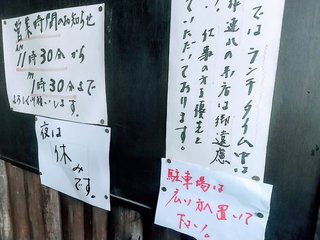 営業時間のお知らせ
AM
11時30分から
1時30分まで
よろしくお願いします。
夜は
休
みです。
では ランチタイム中は
連れの来店は御遠慮
いただいております。
仕事の方を優先と
駐車場は
広い所へ置いて
下さい。